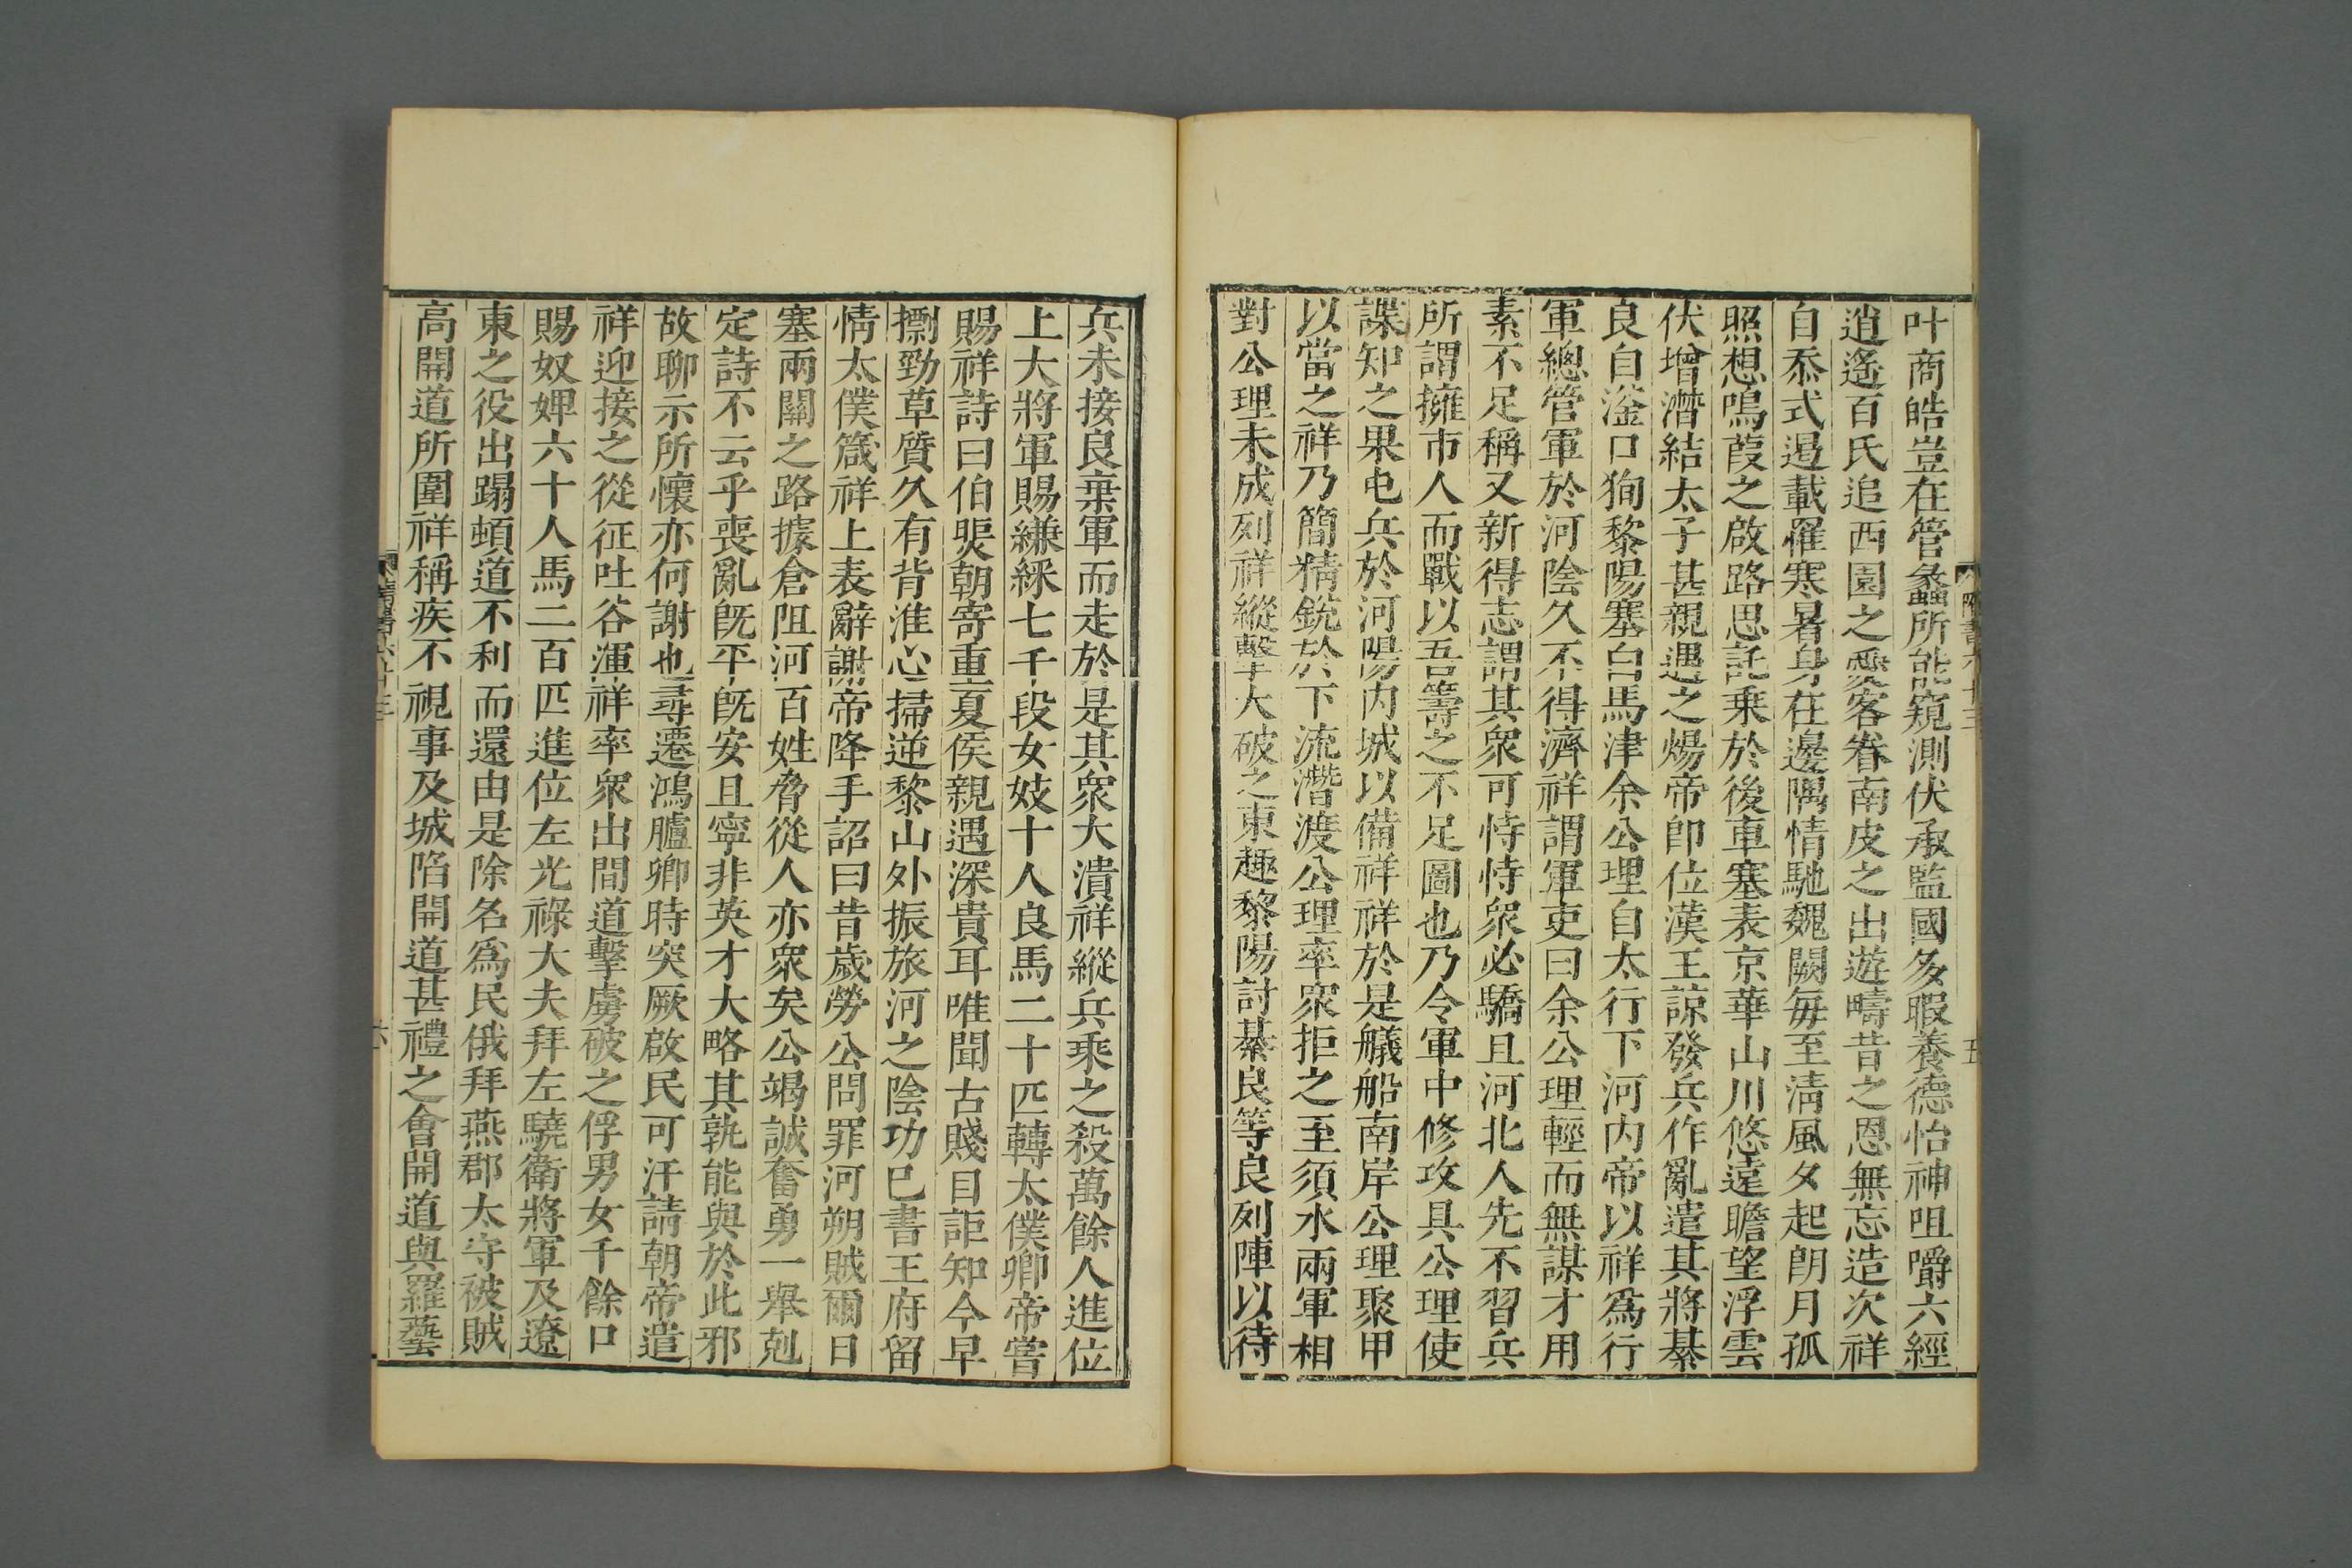 叶商皓豈在管蠡所能窺測伏承監國多暇養德怡神咀嚼六經
逍遙百氏追西園之愛客眷南皮之出遊疇昔之恩無忘造次祥
自忝式遏載罹寒暑身在邊隅情馳魏闕每至清風夕起朗月孤
照想鳴葭之啟路思託乗於後車塞表京華山川悠遠瞻望浮雲
伏增潸結太子甚親遇之煬帝卽位漢王諒發兵作亂遣其將綦
良自滏口狥黎陽塞白馬津余公理自太行下河內帝以祥爲行
軍總管軍於河陰久不得濟祥謂軍吏曰余公理輕而無謀才用
素不足稱又新得志謂其衆可恃恃衆必驕且河北人先不習兵
所謂擁市人而戰以吾籌之不足圖也乃令軍中修攻具公理使
諜知之果屯兵於河陽內城以備祥祥於是艤船南岸公理聚甲
以當之祥乃簡精銳於下流潛渡公理率衆拒之至須水兩軍相
對公理未成列祥縱擊大破之東趣黎陽討綦良等良列陣以待
兵未接良棄軍而走於是其衆大潰祥縱兵乘之殺萬餘人進位
上大將軍賜縑綵七千段女妓十人良馬二十匹轉太僕卿帝嘗
賜祥詩曰伯煚朝寄重夏侯親遇深貴耳唯聞古賤目詎知今早
摽勁草質久有背淮心掃逆黎山外振旅河之陰功已書王府留
情太僕箴祥上表辭謝帝降手詔曰昔歲勞公問罪河朔賊爾日
塞兩關之路據倉阻河百姓脅從人亦衆矣公竭誠奮勇一舉剋
定詩不云乎喪亂旣平旣安且寧非英才大略其孰能與於此邪
故聊示所懷亦何謝也尋遷鴻臚卿時突厥啟民可汗請朝帝遣
祥迎接之從征吐谷渾祥率衆出間道擊虜破之俘男女千餘口
賜奴婢六十人馬二百匹進位左光祿大夫拜左驍衛將軍及遼
東之役出蹋頓道不利而還由是除名爲民俄拜燕郡太守被賊
高開道所圍祥稱疾不視事及城陷開道甚禮之會開道與羅藝